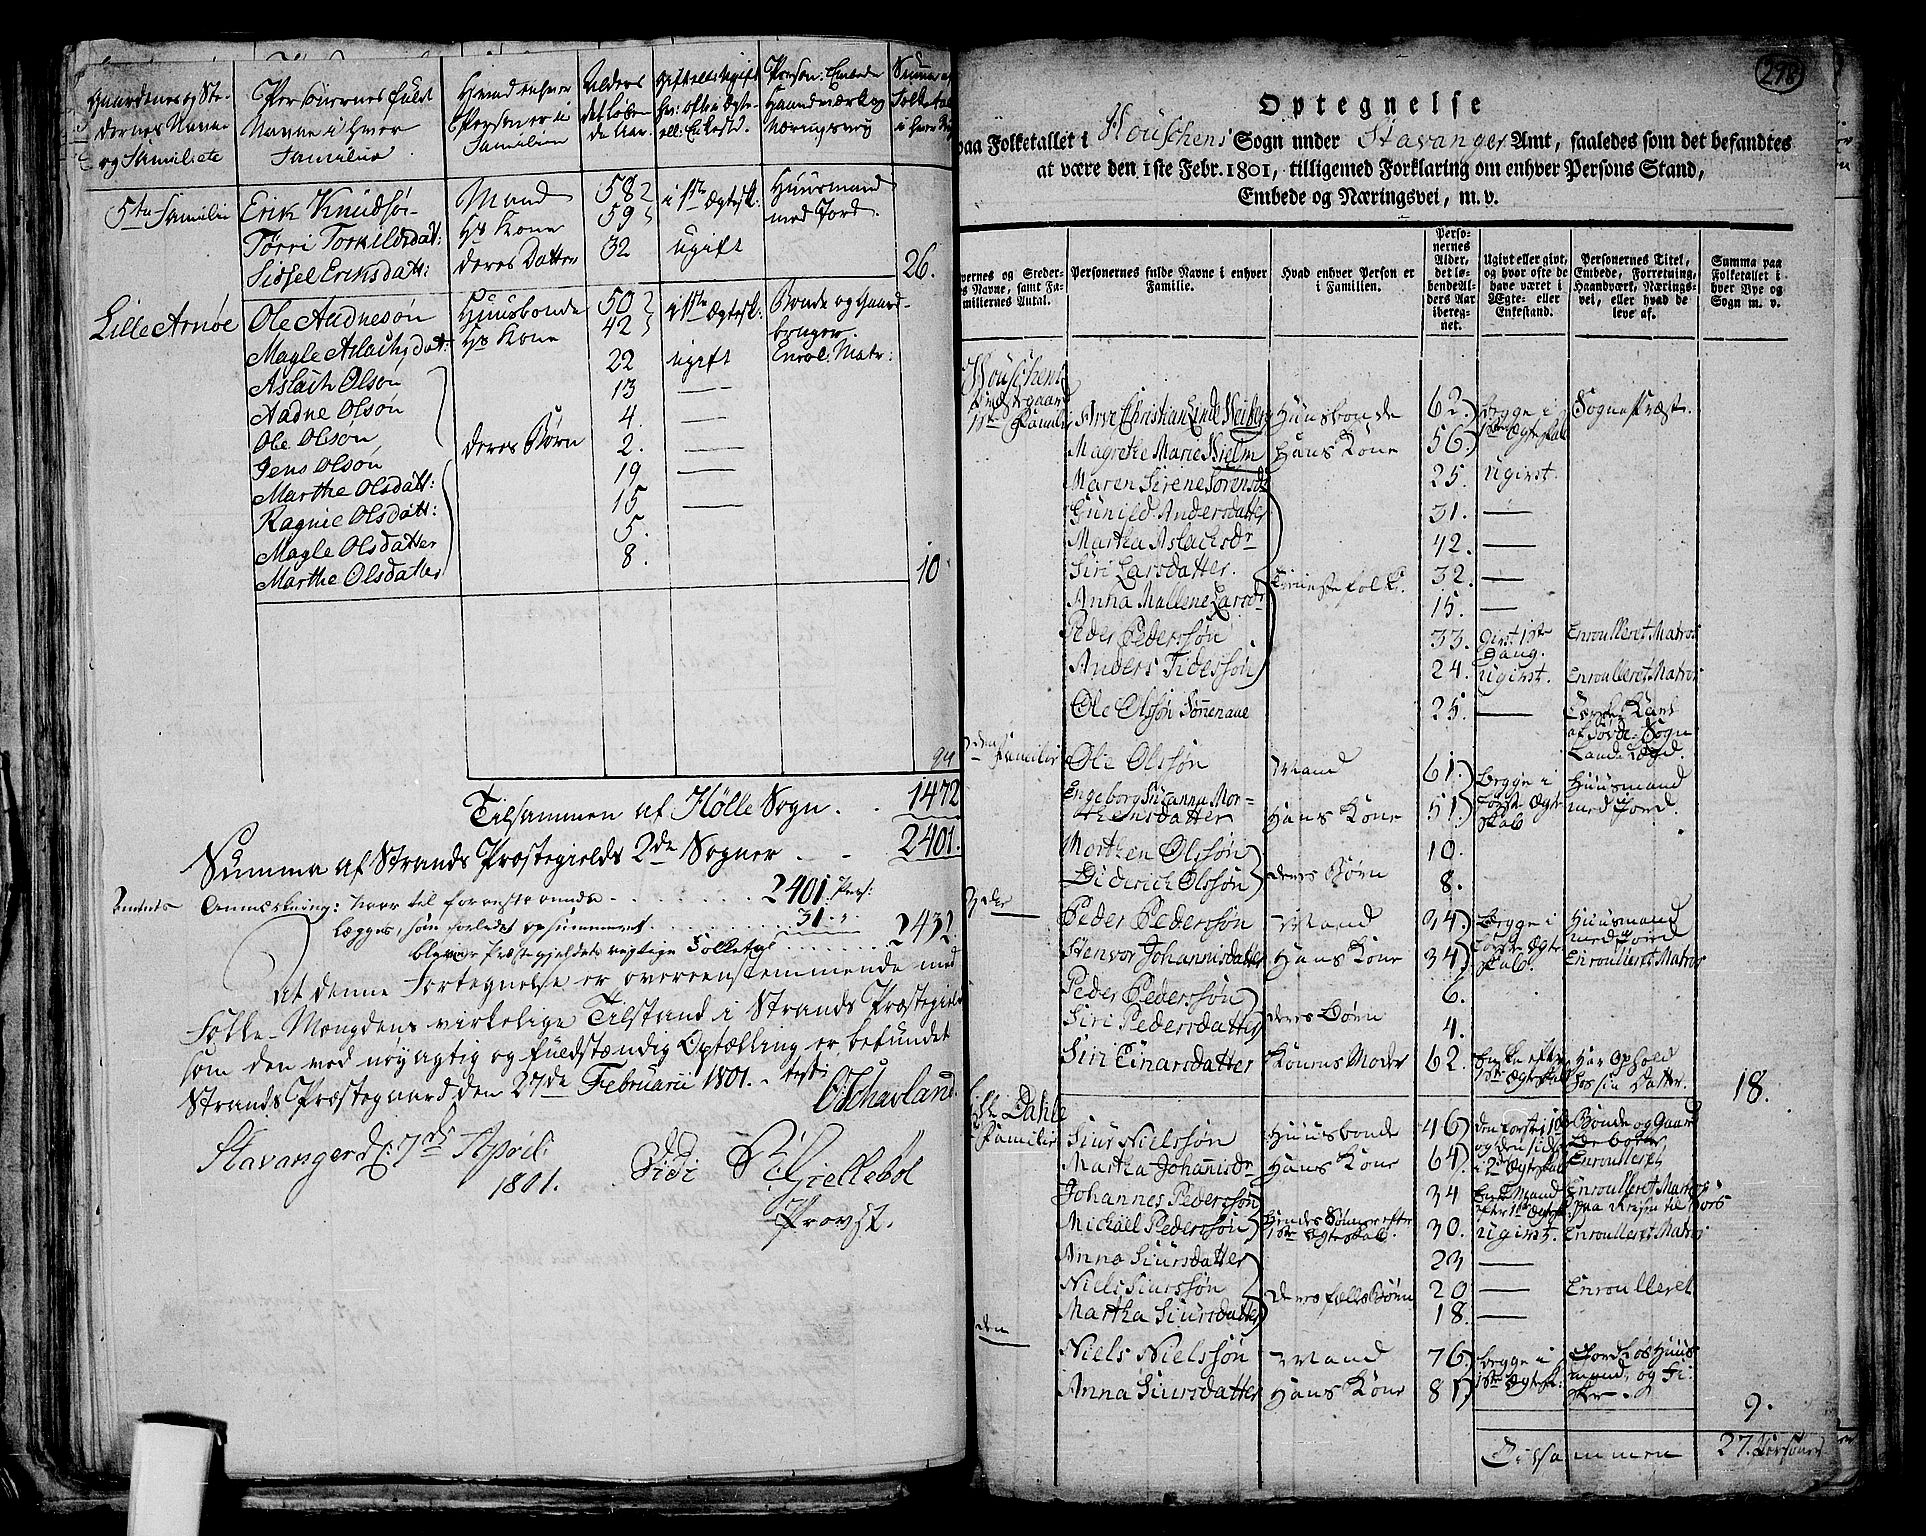 Gaardenes og Ste-
dernes Navne
og Familiete
Personernes fulde
Navne i hver
Familie
Hvad enhver
Person er i
Familien
Alders
det løben-
de Aar.
Person: Embede
Haandværk og
Næringsvej
Summa
Folketal
5te Familie
Erik Knudsøn
Mand
58
i 1ste Ægtesk:
Huusmand
med Jord.
Tørri Torkildsdat:
Hs Kone
59
Sissel Eriksdatt:
deres Datter
32
ugift
26.
Lille Arnøe
Ole Aadnesøn
Huusbonde
50
i 1ste Ægtesk:
Bonde og Gaard-
bruger.
Magle Aslachsdat:
Hs Kone
42
Aslach Olsøn
22
ugift
Enrol: Matr:
Aadne Olsøn
13
—
Ole Olsøn
4.
—
Jens Olsøn
deres Børn
2.
—
Marthe Olsdatt:
19
—
Ragnie Olsdatt:
15
—
Magle Olsdatter
5.
Marthe Olsdatter
8.
10
94
Tilsammen af Hölle Sogn . . 1472
Summa af Strands Præstegields 2de Sogner - - 2401.
Anmerkning: naar til foranførte anmdr . . . . . 2401. Pers:
lægges, som forledet opsummeret . . . . 31. "
bliver Præstegieldets rigtige Folketal . . . . 2432
At denne Fortegnelse er overeensstemmende med
Folke-Mængdens virkelige Tilstand i Strands Præstegield
som den ved nøyagtig og fuldstændig Optælling er befundet
Strands Præstegaard den 27de Februarii 1801. - test:
O Schavland.
Stavanger d: 7de April:
1801.
Vidi
Gjellebøl
Provst.
278
Optegnelse
paa Folketallet i Houschens Sogn under Stavanger Amt, saaledes som det befandtes
at være den 1ste Febr. 1801, tilligemed Forklaring om enhver Persons Stand,
Embede og Næringsvei, m. v.
vernes og Steder-
s Navne, samt Fa-
miliernes Antal.
Personernes fulde Navne i enhver
Familie.
Hvad enhver Person er
i Familien.
Perso-
nernes
Alder,
det lø-
bende Al-
ders Aar
ibereg-
net.
Ugivt eller givt,
og hvor ofte de
have været i
Ægte- eller
Enkestand.
Personernes Titel,
Embede, Forretning,
Haandværk, Nærings-
vei, eller hvad de
leve af.
Summa paa
Folketallet i
hver Bye og
Sogn m. v.
Houschens
Præstegaard
1ste Familie
Arve Christian Linde Heiberg
Huusbonde
62.
begge i
1ste Ægteskab
Sognepræst.
Magrethe Marie Hielm
Hans Kone
56.
Maren Sirene Sørensdr
25.
ugivt.
Gunild Andersdatter
31.
—
Martha Aslachsdr
42.
—
Siri Larsdatter.
Tienestefolk.
32.
—
Anna Mallene Larsdr
15.
—
Peder Pederssøn
33.
givt 1ste
Gang.
Enroulleret Matros
Anders Tiderssøn
24.
ugivt.
Enroulleret Matros
Ole Olssøn Sønnenaae
25.
—
Sogn
2den Familie
Ole Olssøn
Mand
61.
begge i
første Ægte-
skab
Huusmand
med Jord.
Engeborg Susanna Mor-
thensdatter
Hans Kone
51.
Morthen Olssøn
10.
Diderich Olssøn
deres Børn
8.
3die —
Peder Pederssøn
Mand
34.
begge i
første Ægte-
skab.
Huusmand
med Jord
Enroulleret Matros
Stenvor Johannisdatter
Hans Kone
34
Peder Pederssøn
6.
Siri Pedersdatter
deres Børn
4.
Siri Einarsdatter
Konens Moder
62.
Enke efter
1ste Ægteskab
Har Ophold
hos sin Datter.
18.
Dahle
Familie
Siur Nielssøn
Huusbonde
46
Bonde og Gaard
Enroulleret
Martha Johannisdr
Hans Kone
64
i 2det Ægteskab
Johannes Pederssøn
34
Enkemand
efter 1ste Ægtesk.
Enroulleret Matros
Michael Pederssøn
Hendes Sønner efter
1ste Ægteskab.
30.
ugivt.
Enroulleret Matros
Anna Siursdatter
23
—
Niels Siurssøn
deres fælles Børn
20
—
Enroulleret
Martha Siursdatter
18.
—
Niels Nielssøn
Mand
76
begge i
1ste Ægtesk:
Jordløs Huus
mand, og Fi-
sker.
Anna Siursdatter
Hans Kone
81
9.
Tilsammen
27. Personer